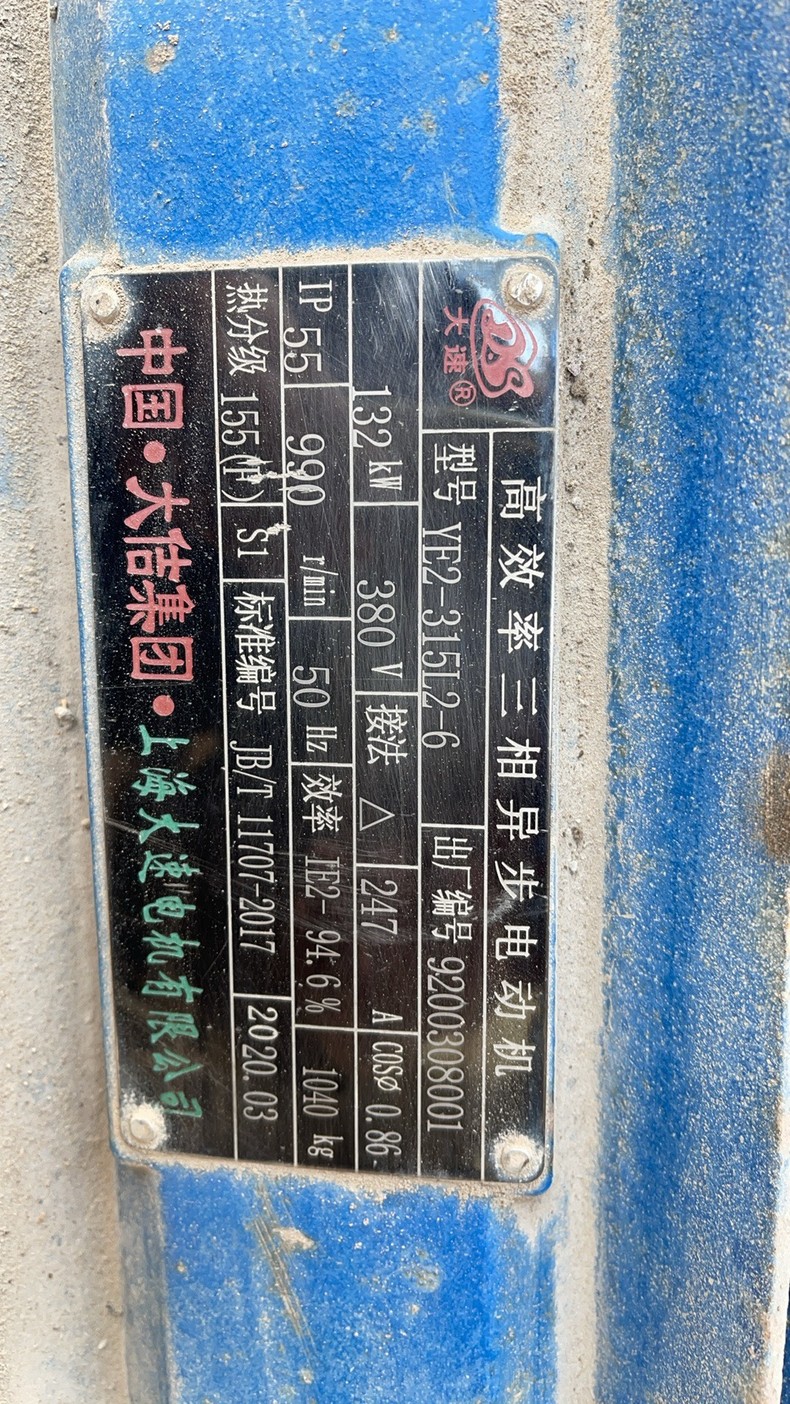 DS
大速®
高效率三相异步电动机
型号 YE2-315L2-6 出厂编号 9200308001
132 kW 380 V 接法 △ 247 A cosø 0.86
IP 55 990 r/min 50 Hz 效率 IE2-94.6% 1040 kg
热分级 155(F) S1 标准编号 JB/T 11707-2017 2020.03
中国·大信集团·上海大速电机有限公司